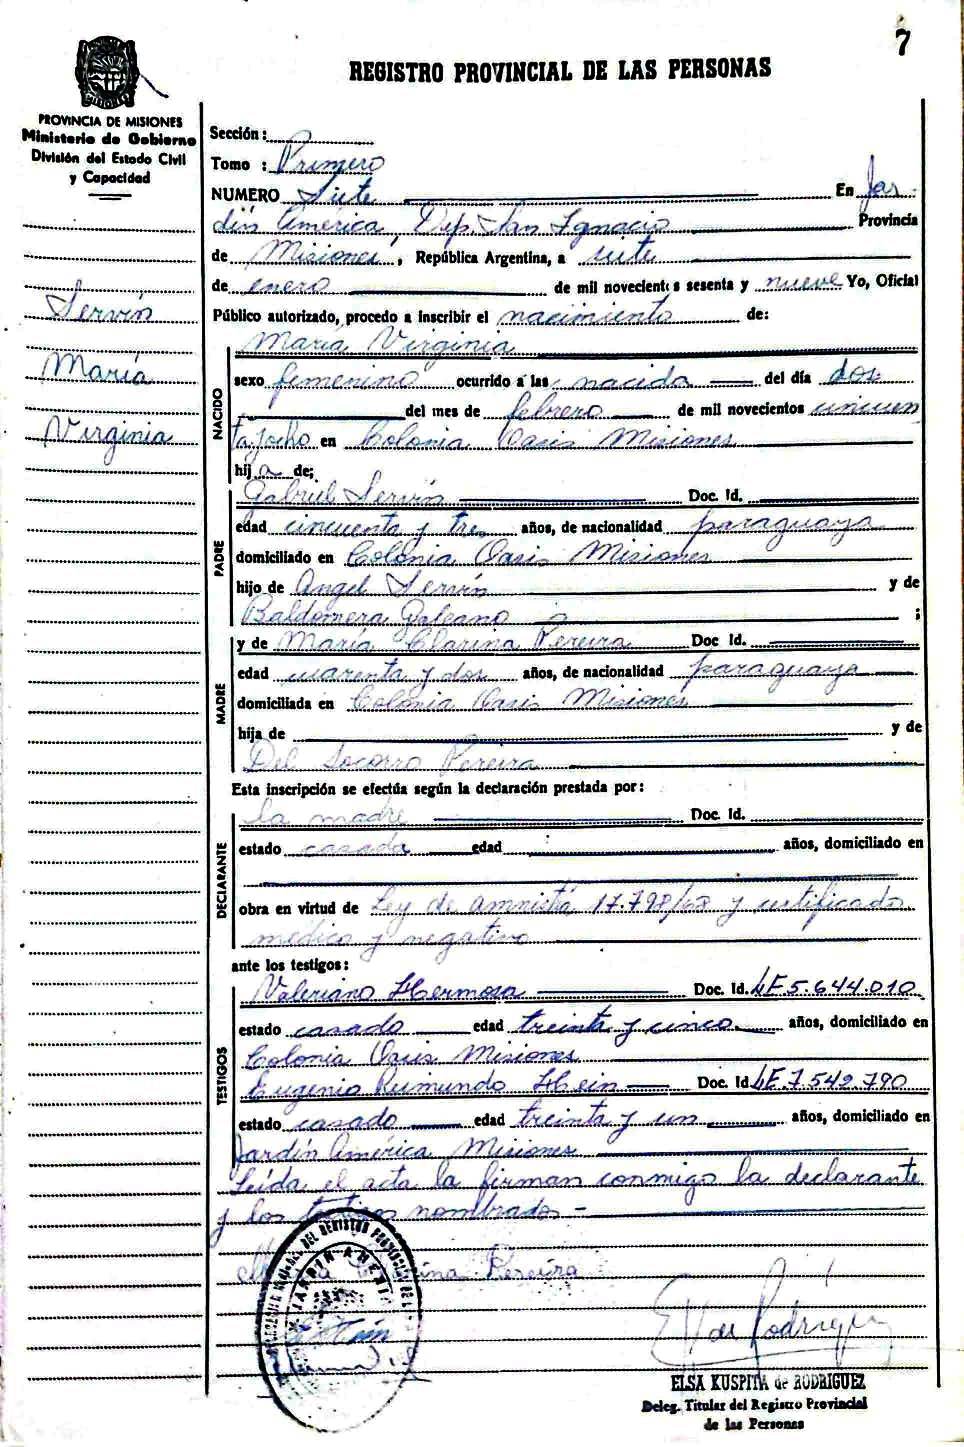 7
REGISTRO PROVINCIAL DE LAS PERSONAS
MISIONES
PROVINCIA DE MISIONES
Ministerio de Gobierno
División del Estado Civil
y Capacidad
Servín
María
Virginia
Sección:
Tomo : Primero
NUMERO Siete En Jar
dín América, Dep. San Ignacio Provincia
de Misiones, República Argentina, a siete
de enero de mil novecientos sesenta y nueve Yo, Oficial
Público autorizado, procedo a inscribir el nacimiento de:
NACIDO
María Virginia
sexo femenino ocurrido a las nacida del día dos
del mes de febrero de mil novecientos cincuen
ta y ocho en Colonia Oasis Misiones
hija de;
PADRE
Gabriel Servín Doc. Id.
edad cincuenta y tres años, de nacionalidad paraguaya
domiciliado en Colonia Oasis Misiones
hijo de Angel Servín y de
Baldomera Galeano ;
MADRE
y de María Clarina Pereira Doc Id.
edad cuarenta y dos años, de nacionalidad paraguaya
domiciliada en Colonia Oasis Misiones
hija de y de
Del Socorro Pereira
Esta inscripción se efectúa según la declaración prestada por:
DECLARANTE
la madre Doc. Id.
estado casada edad años, domiciliado en
obra en virtud de Ley de amnistía 17.798/68 y certificados
médico y negativo
ante los testigos:
TESTIGOS
Valeriano Hermosa Doc. Id. LE 5.644.010
estado casado edad treinta y cinco años, domiciliado en
Colonia Oasis Misiones
Eugenio Reimundo Hein Doc. Id LE 7.542.790
estado casado edad treinta y un años, domiciliado en
Jardín América Misiones
Leída el acta la firman conmigo la declarante
y los testigos nombrados -
Pereira
JARDIN AMERICA
E Hein
E K de Rodriguez
ELSA KUSPITA de RODRIGUEZ
Deleg. Titular del Registro Provincial
de las Personas